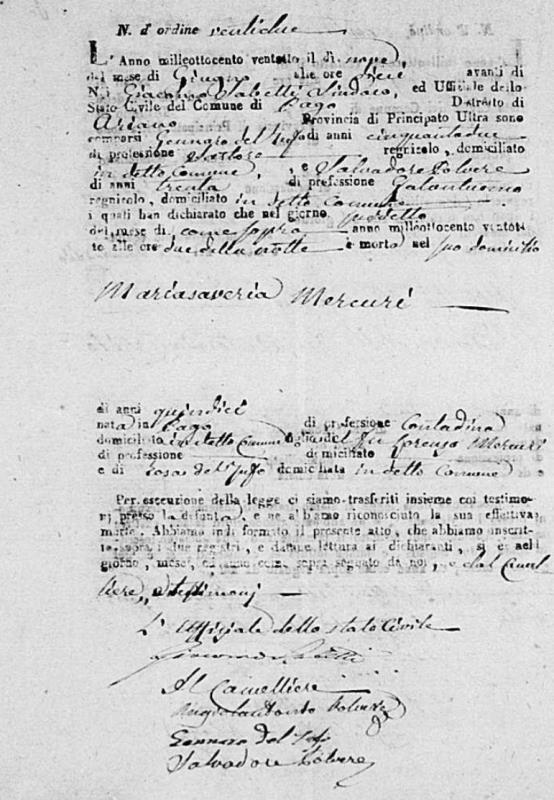 N. d'ordine ventidue
L'Anno milleottocento ventotto il dì nove
del mese di Giugno alle ore dieci avanti di
Noi Giacomo Sabetti Sindaco, ed Uffiziale dello
Stato Civile del Comune di Pago Distretto di
Ariano Provincia di Principato Ultra sono
comparsi Gennaro del Tufo di anni cinquantadue
di professione regnicolo, domiciliato
in detto Comune, e Salvadore Polvere
di anni trenta di professione Galantuomo
regnicolo, domiciliato in detto Comune
i quali han dichiarato che nel giorno suddetto
del mese di come sopra anno milleottocento ventot-
to alle ore due della notte è morta nel suo domicilio
Mariasaveria Mercuri
di anni quindici
nata in Pago di professione Contadina
domiciliata in detto Comune figlia del fu Lorenzo Mercuri
di professione domiciliato
e di Rosa del Tufo domiciliata in detto Comune
Per esecuzione della legge ci siamo trasferiti insieme coi testimo-
nj presso la defunta, e ne abbiamo riconosciuto la sua effettiva
morte. Abbiamo indi formato il presente atto, che abbiamo inscrit-
to sopra i due registri, e datane lettura ai dichiaranti, si è nel
giorno, mese, ed anno come sopra segnato da noi, e dal Cancel-
liere, e testimonj
L'Uffiziale dello stato Civile
Giacomo Sabetti
Il Cancelliere
Angelantonio Polvere
Gennaro del Tufo
Salvadore Polvere